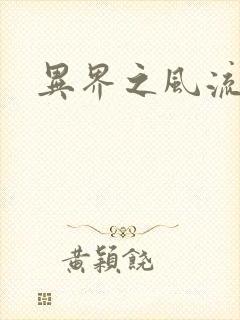 異界之風流
黃穎饒